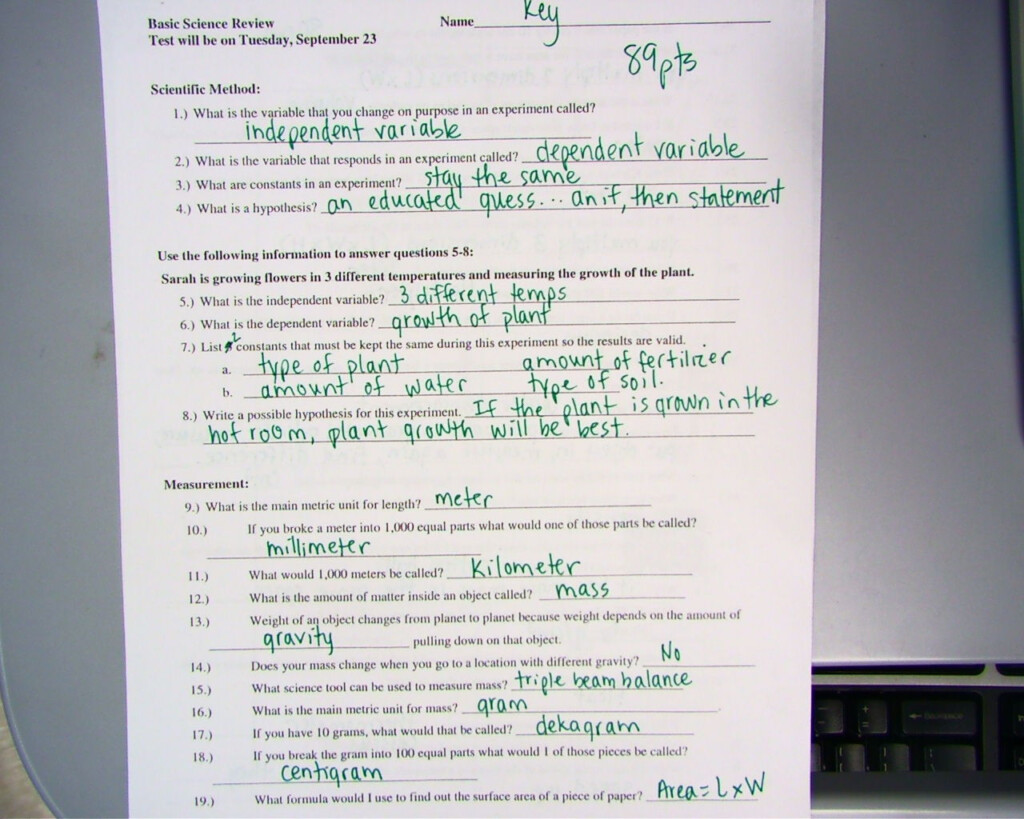 Basic Science Review Name Key
Test will be on Tuesday, September 23
89 pts
Scientific Method:
1.) What is the variable that you change on purpose in an experiment called?
independent variable
2.) What is the variable that responds in an experiment called? dependent variable
3.) What are constants in an experiment? stay the same
4.) What is a hypothesis? an educated guess... an if, then statement
Use the following information to answer questions 5-8:
Sarah is growing flowers in 3 different temperatures and measuring the growth of the plant.
5.) What is the independent variable? 3 different temps
6.) What is the dependent variable? growth of plant
7.) List 2 constants that must be kept the same during this experiment so the results are valid.
a. type of plant amount of fertilizer
b. amount of water type of soil.
8.) Write a possible hypothesis for this experiment. If the plant is grown in the
hot room, plant growth will be best.
Measurement:
9.) What is the main metric unit for length? meter
10.) If you broke a meter into 1,000 equal parts what would one of those parts be called?
millimeter
11.) What would 1,000 meters be called? Kilometer
12.) What is the amount of matter inside an object called? mass
13.) Weight of an object changes from planet to planet because weight depends on the amount of
gravity pulling down on that object.
14.) Does your mass change when you go to a location with different gravity? No
15.) What science tool can be used to measure mass? triple beam balance
16.) What is the main metric unit for mass? gram
17.) If you have 10 grams, what would that be called? dekagram
18.) If you break the gram into 100 equal parts what would 1 of those pieces be called?
centigram
19.) What formula would I use to find out the surface area of a piece of paper? Area = L x W